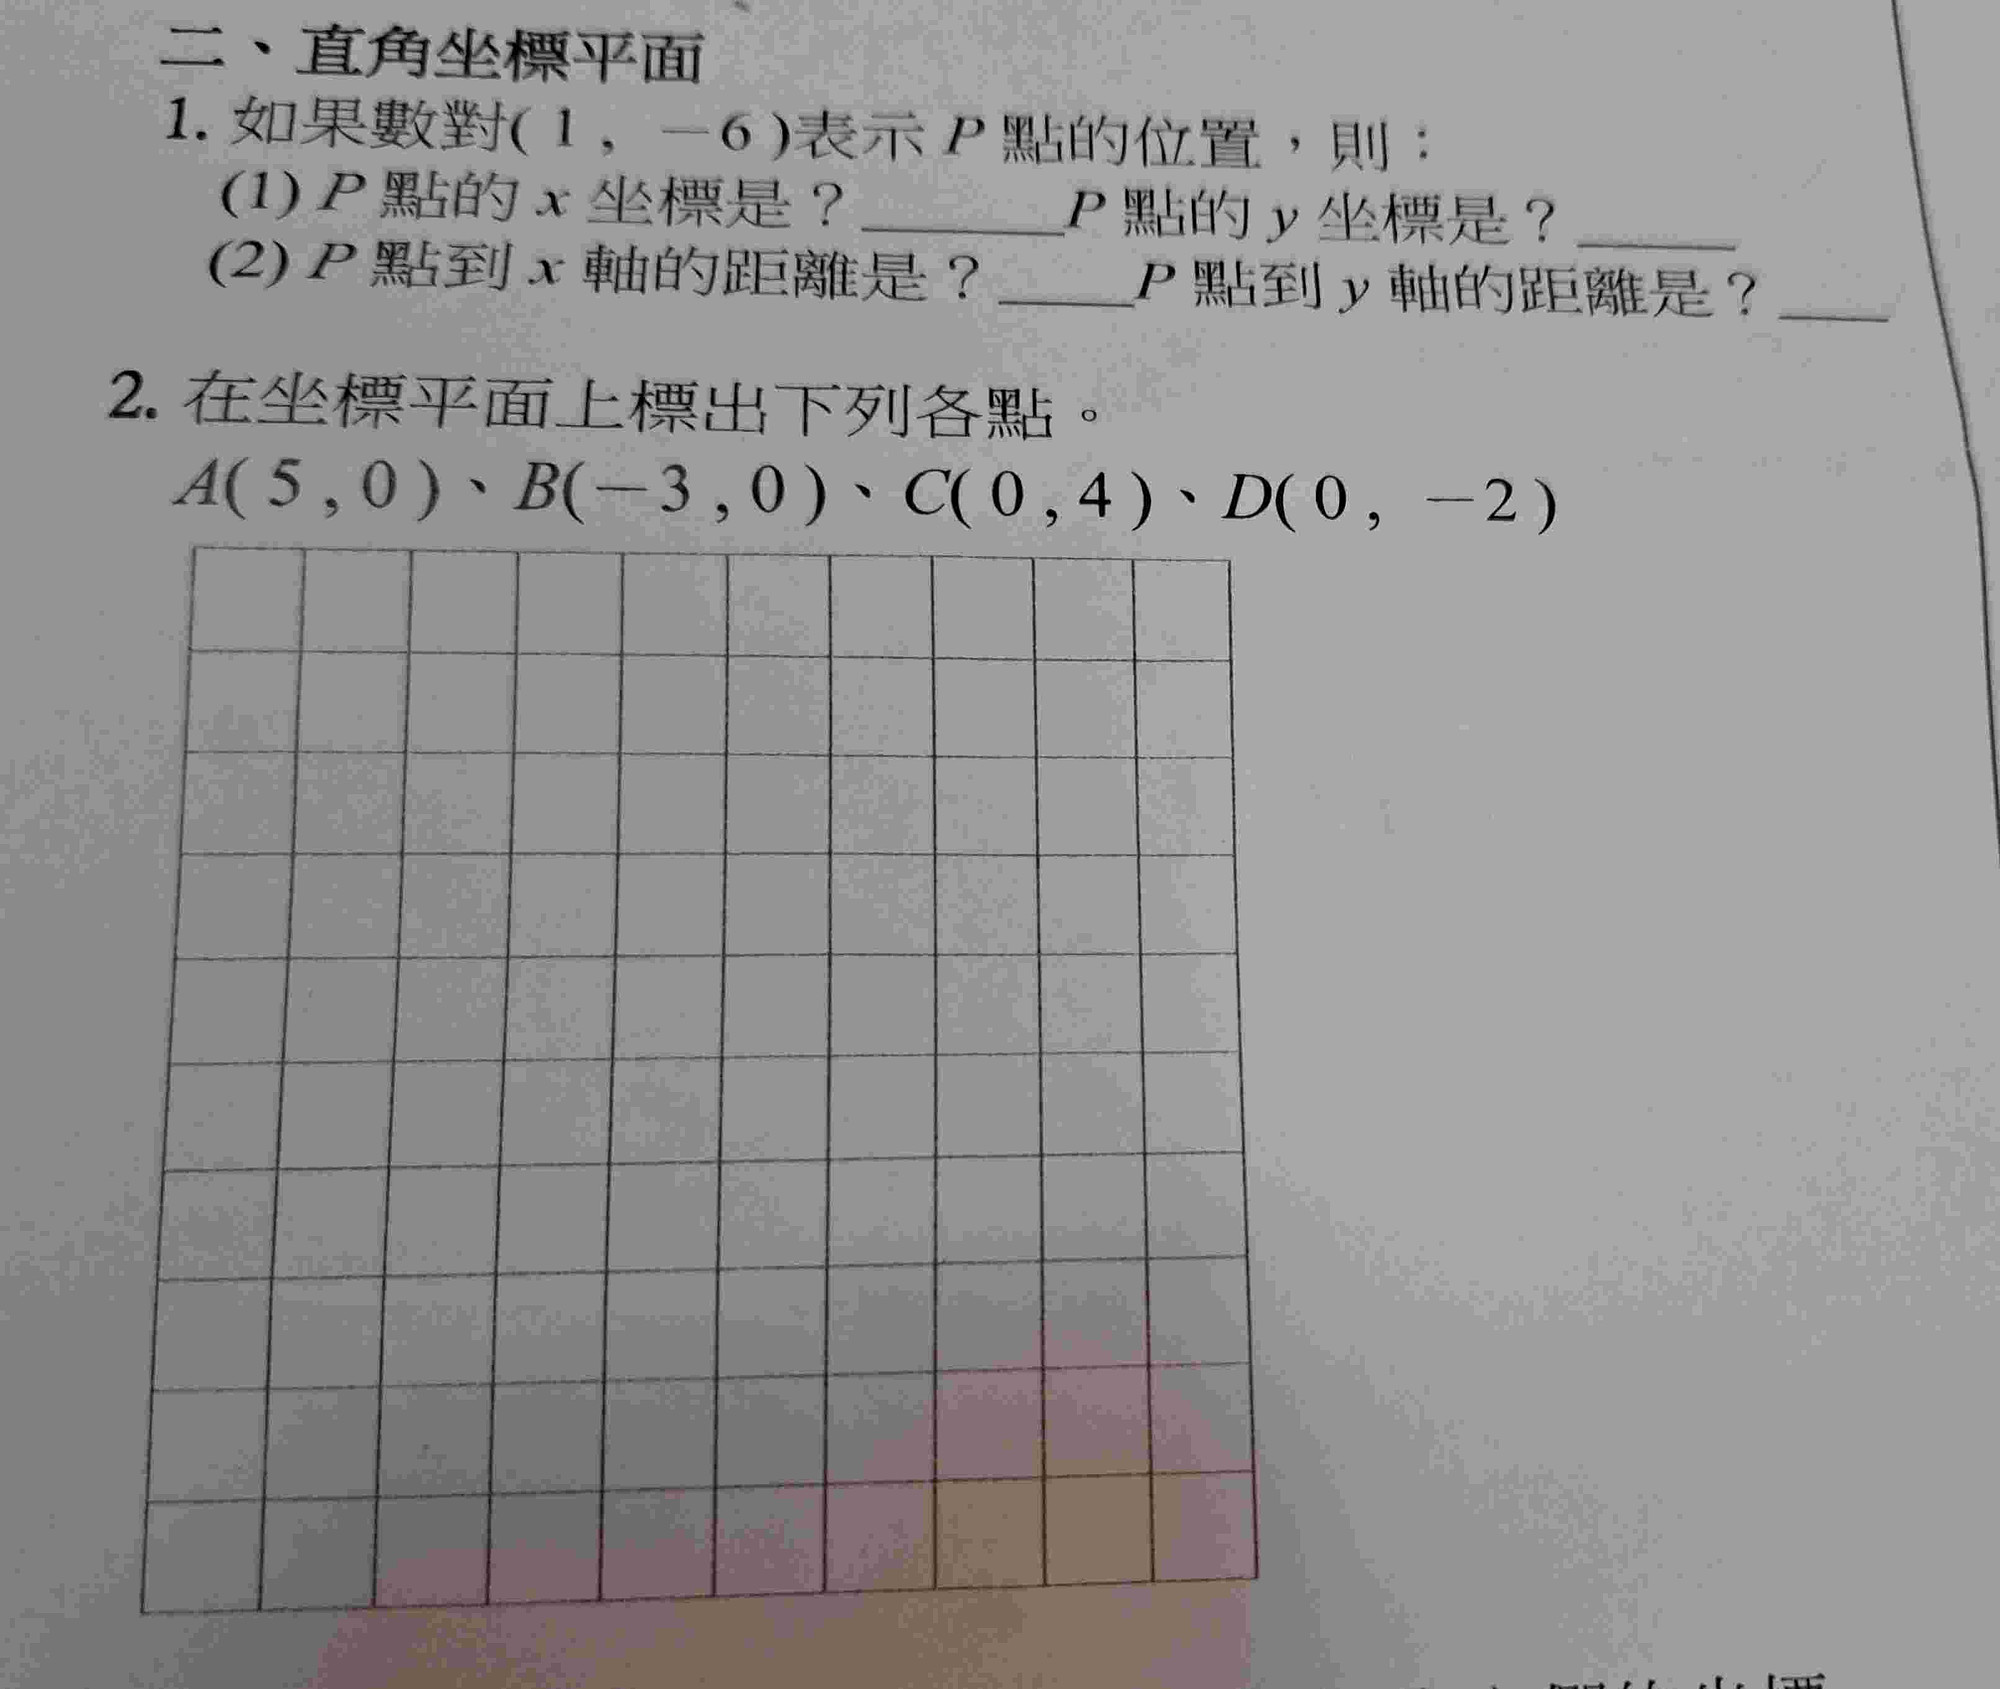 二、直角坐標平面
1. 如果數對( 1 , －6 )表示 P 點的位置，則：
(1) P 點的 x 坐標是？______P 點的 y 坐標是？_____
(2) P 點到 x 軸的距離是？____P 點到 y 軸的距離是？___
2. 在坐標平面上標出下列各點。
A( 5 , 0 )、B(－3 , 0 )、C( 0 , 4 )、D( 0 , －2 )